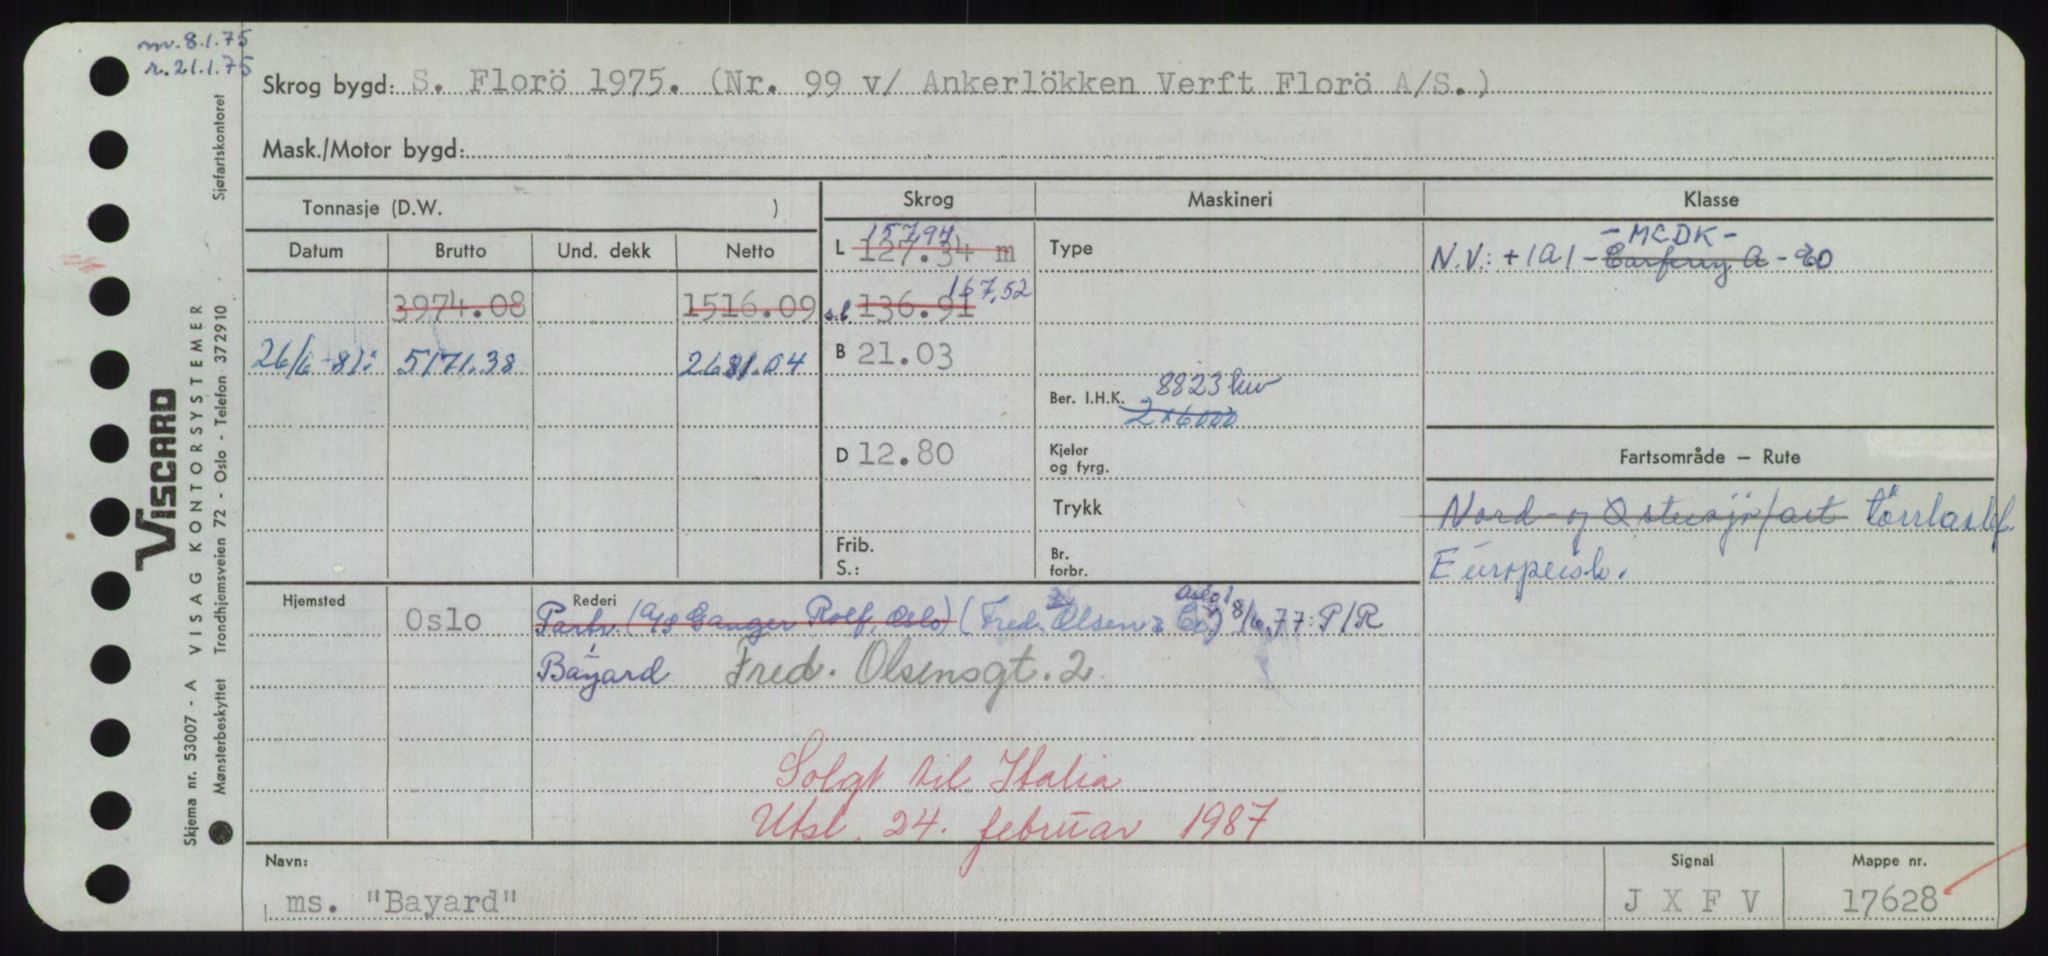 mv. 8.1.75
r. 21.1.75
Skrog bygd: S. Florö 1975. (Nr. 99 v/ Ankerlökken Verft Florö A/S.)
Mask./Motor bygd:
Tonnasje (D.W. )
Skrog
Maskineri
Klasse
Datum
Brutto
Und. dekk
Netto
L 127.34 m
157,94
Type
N.V.: + 1A1 - Carferry A - EO
- MCDK -
3974.08
1516.09
s.l. 136.91
167,52
26/6-81:
5171.38
2681.04
B 21.03
Ber. I.H.K.
8823 kw
2 x 6000
D 12.80
Kjelor
og fyrg.
Fartsområde — Rute
Trykk
Nord- og Østersjøfart
Frib.
S.:
Br.
forbr.
Europeisk.
Hjemsted
Oslo
Rederi
Partr. (A/S Ganger Rolf, Oslo) (Fred. Olsen & Co, Oslo) 8/6.77: P/R
Bayard
Fred. Olsensgt. 2
Solgt til Italia
Utsl. 24. februar 1987
Navn:
ms. "Bayard"
Signal
J X F V
Mappe nr.
17628
VISCARD
VISAG KONTORSYSTEMER
Skjema nr. 53007 - A
Mønsterbeskyttet
Trondhjemsveien 72 - Oslo - Telefon 372910
Sjøfartskontoret